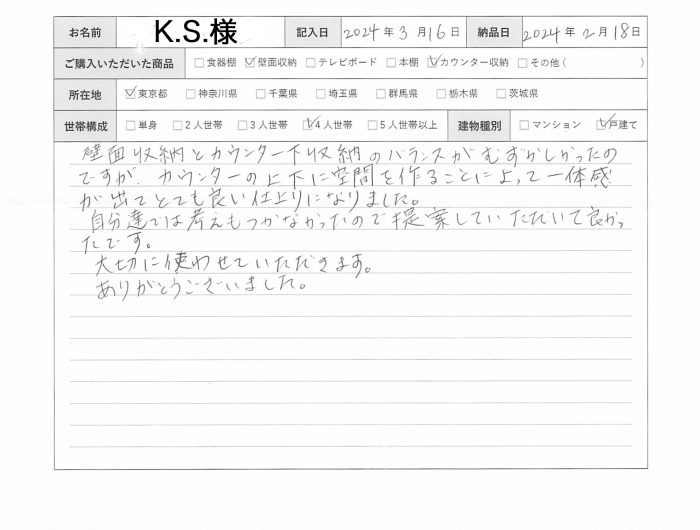 お名前 K.S.様 記入日 2024年3月16日 納品日 2024年2月18日
ご購入いただいた商品 □食器棚 ☑壁面収納 □テレビボード □本棚 ☑カウンター収納 □その他( )
所在地 ☑東京都 □神奈川県 □千葉県 □埼玉県 □群馬県 □栃木県 □茨城県
世帯構成 □単身 □2人世帯 □3人世帯 ☑4人世帯 □5人世帯以上 建物種別 □マンション ☑戸建て
壁面収納とカウンター下収納のバランスがむずかしかったの
ですが、カウンターの上下に空間を作ることによって一体感
が出てとても良い仕上りになりました。
自分達では考えもつかなかったので提案していただいて良かっ
たです。
大切に使わせていただきます。
ありがとうございました。